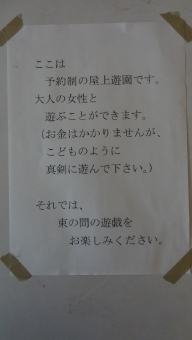 ここは
予約制の屋上遊園です。
大人の女性と
遊ぶことができます。
（お金はかかりませんが、
こどものように
真剣に遊んで下さい。）
それでは、
束の間の遊戯を
お楽しみください。